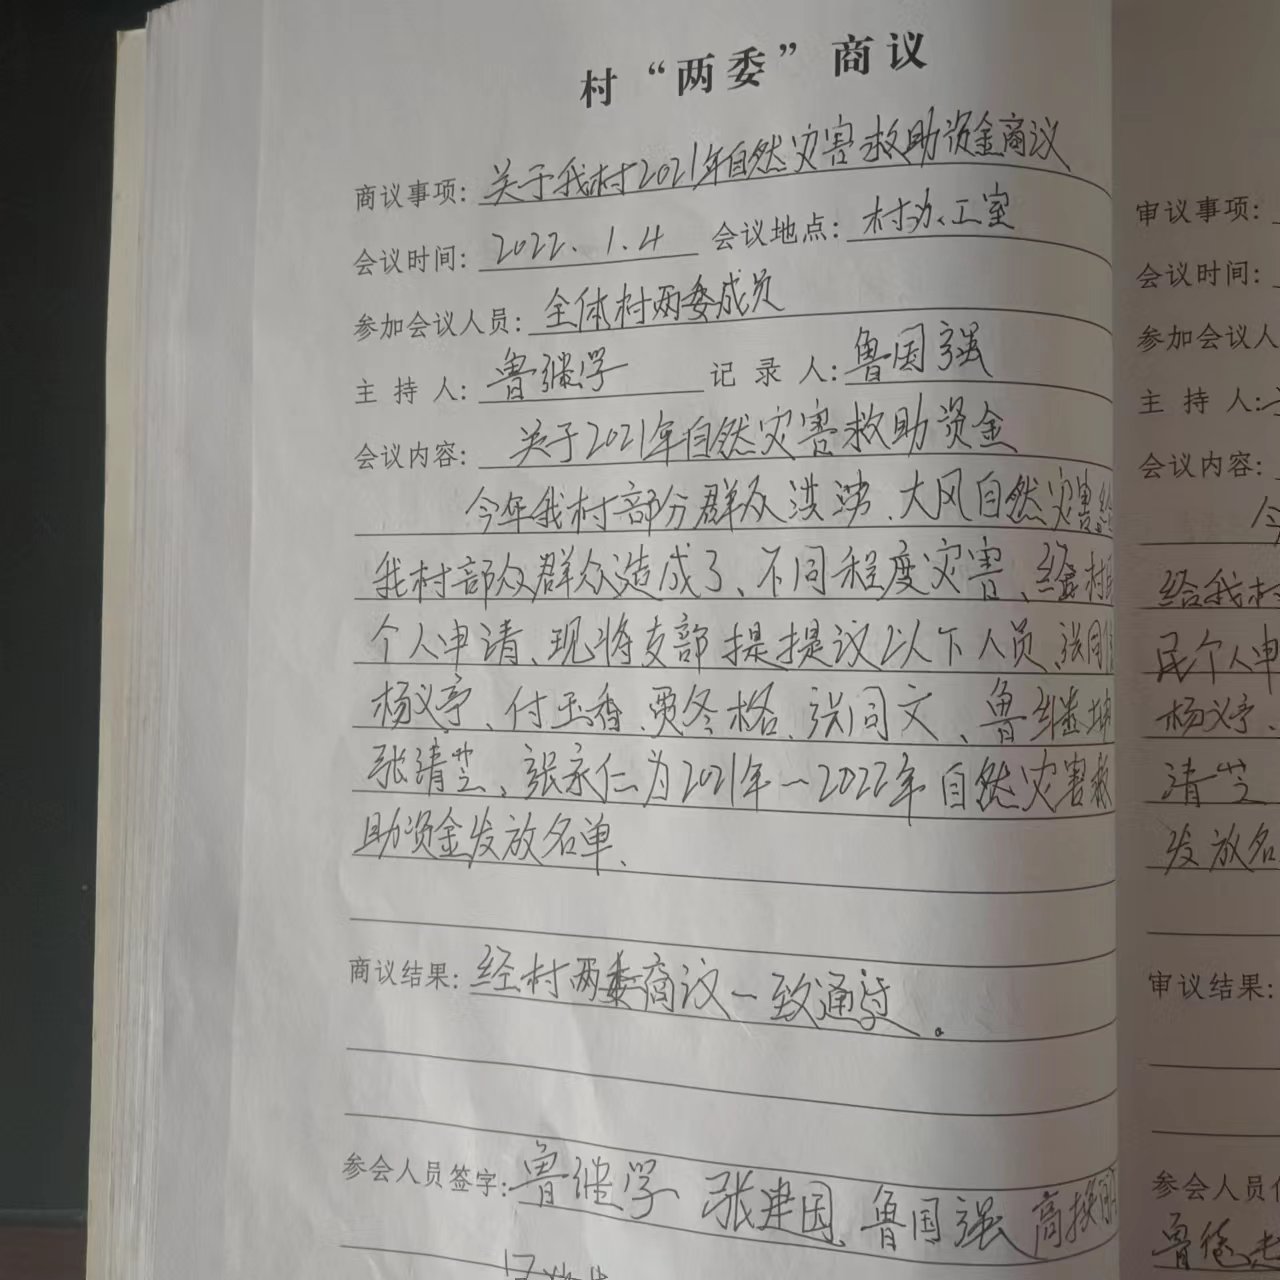 村“两委”商议
商议事项: 关于我村2021年自然灾害救助资金商议
会议时间: 2022、1.4 会议地点: 村办工室
参加会议人员: 全体村两委成员
主 持 人: 鲁继学 记 录 人: 鲁国强
会议内容: 关于2021年自然灾害救助资金
今年我村部分群众洪涝、大风自然灾害给
我村部众群众造成了、不同程度灾害、经村
个人申请、现将支部提提议以下人员、张同
杨义亭、付玉香、贾冬格、张同文、鲁继坤
张清芝、张永仁为2021年一2022年自然灾害救
助资金发放名单、
商议结果: 经村两委商议一致通过。
参会人员签字: 鲁继学 张建国 鲁国强 高
审议事项:
会议时间:
参加会议人
主 持 人:
会议内容:
今
给我村
民个人申
杨义亭、
清芝
发放名
审议结果:
参会人员